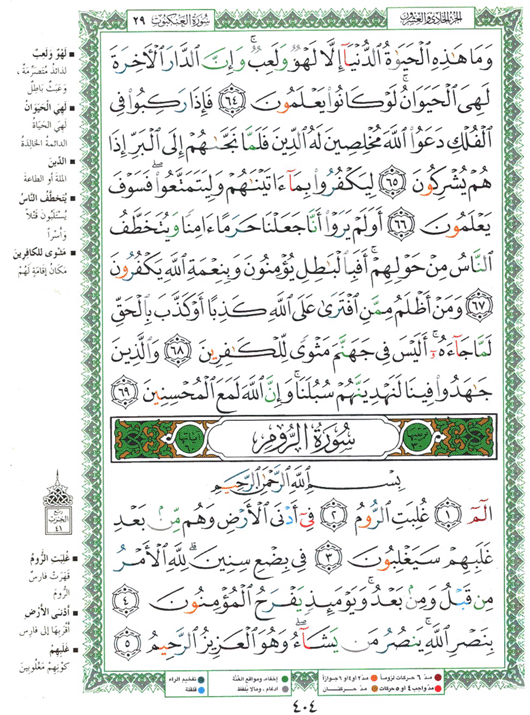 الجزء الحادي والعشرون
سورة العنكبوت ٢٩
وَمَا هَٰذِهِ الْحَيَوٰةُ الدُّنْيَآ إِلَّا لَهْوٌ وَلَعِبٌ ۚ وَإِنَّ الدَّارَ الْآخِرَةَ
لَهِيَ الْحَيَوَانُ ۚ لَوْ كَانُوا يَعْلَمُونَ ٦٤ فَإِذَا رَكِبُوا فِي
الْفُلْكِ دَعَوُا اللَّهَ مُخْلِصِينَ لَهُ الدِّينَ فَلَمَّا نَجَّىٰهُمْ إِلَى الْبَرِّ إِذَا
هُمْ يُشْرِكُونَ ٦٥ لِيَكْفُرُوا بِمَآ ءَاتَيْنَٰهُمْ وَلِيَتَمَتَّعُوا ۖ فَسَوْفَ
يَعْلَمُونَ ٦٦ أَوَلَمْ يَرَوْا أَنَّا جَعَلْنَا حَرَمًا ءَامِنًا وَيُتَخَطَّفُ
النَّاسُ مِنْ حَوْلِهِمْ ۚ أَفَبِالْبَٰطِلِ يُؤْمِنُونَ وَبِنِعْمَةِ اللَّهِ يَكْفُرُونَ
٦٧ وَمَنْ أَظْلَمُ مِمَّنِ افْتَرَىٰ عَلَى اللَّهِ كَذِبًا أَوْ كَذَّبَ بِالْحَقِّ
لَمَّا جَآءَهُ ۚ أَلَيْسَ فِي جَهَنَّمَ مَثْوًى لِّلْكَٰفِرِينَ ٦٨ وَالَّذِينَ
جَٰهَدُوا فِينَا لَنَهْدِيَنَّهُمْ سُبُلَنَا ۚ وَإِنَّ اللَّهَ لَمَعَ الْمُحْسِنِينَ ٦٩
سُورَةُ الرُّومِ
بِسْمِ اللَّهِ الرَّحْمَٰنِ الرَّحِيمِ
الٓمٓ ١ غُلِبَتِ الرُّومُ ٢ فِيٓ أَدْنَى الْأَرْضِ وَهُم مِّنۢ بَعْدِ
غَلَبِهِمْ سَيَغْلِبُونَ ٣ فِي بِضْعِ سِنِينَ ۗ لِلَّهِ الْأَمْرُ
مِن قَبْلُ وَمِنۢ بَعْدُ ۚ وَيَوْمَئِذٍ يَفْرَحُ الْمُؤْمِنُونَ ٤
بِنَصْرِ اللَّهِ ۚ يَنصُرُ مَن يَشَآءُ ۖ وَهُوَ الْعَزِيزُ الرَّحِيمُ ٥
لَهْوٌ وَلَعِبٌ
لذائذ متصرمة،
وعبث باطل
لَهِيَ الْحَيَوَانُ
لهي الحياة
الدائمة الخالدة
الدِّينَ
الملة أو الطاعة
يُتَخَطَّفُ النَّاسُ
يستلبون قتلاً
وأسراً
مَثْوًى لِلْكَافِرِينَ
مكان إقامة لهم
ربع
الحزب
٤١
غُلِبَتِ الرُّومُ
قهرت فارس
الروم
أَدْنَى الْأَرْضِ
أقربها إلى فارس
غَلَبِهِمْ
كونهم مغلوبين
مدّ ٦ حركات لزوماً
مدّ ٢ او ٤ او ٦ جوازاً
إخفاء، ومواقع الغُنَّة
تفخيم الراء
مدّ واجب ٤ او ٥ حركات
مدّ حركتان
ادغام، وما لا يلفظ
قلقلة
٤٠٤